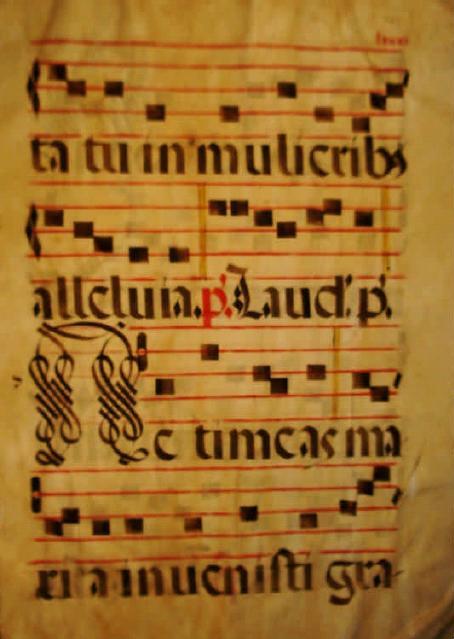 ta tu in mulierib9
alleluia. p. Laud. p.
Ne timeas ma
ria inuenisti gra-